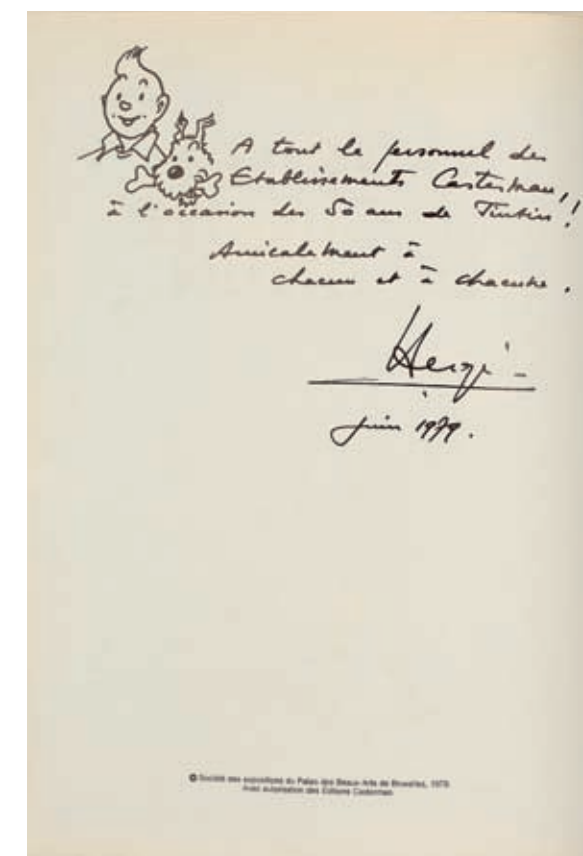 A tout le personnel des
Etablissements Casterman,
à l'occasion des 50 ans de Tintin !
Amicalement à
chacun et à chacune .
Hergé -
juin 1979 .
© Société des expositions du Palais des Beaux-Arts de Bruxelles, 1979.
Avec autorisation des Editions Casterman.